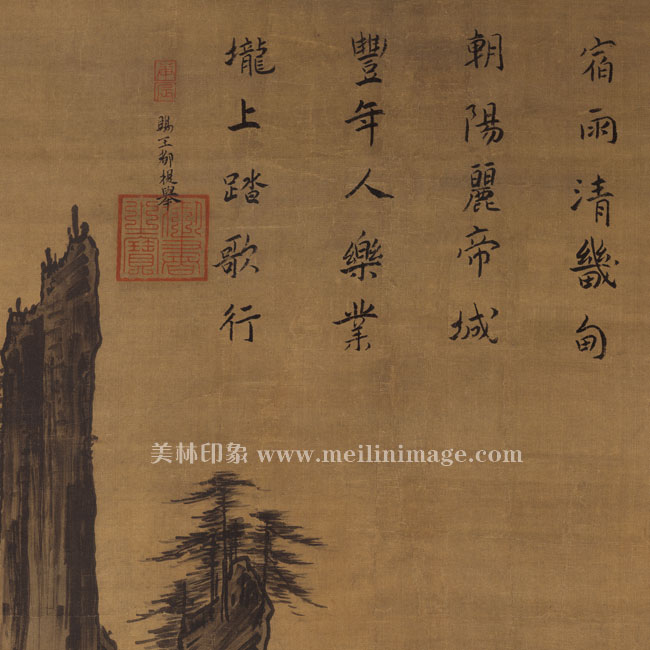 宿雨清畿甸
朝陽麗帝城
豐年人樂業
壠上踏歌行
賜王都提舉
御書之寶
美林印象 www.meilinimage.com